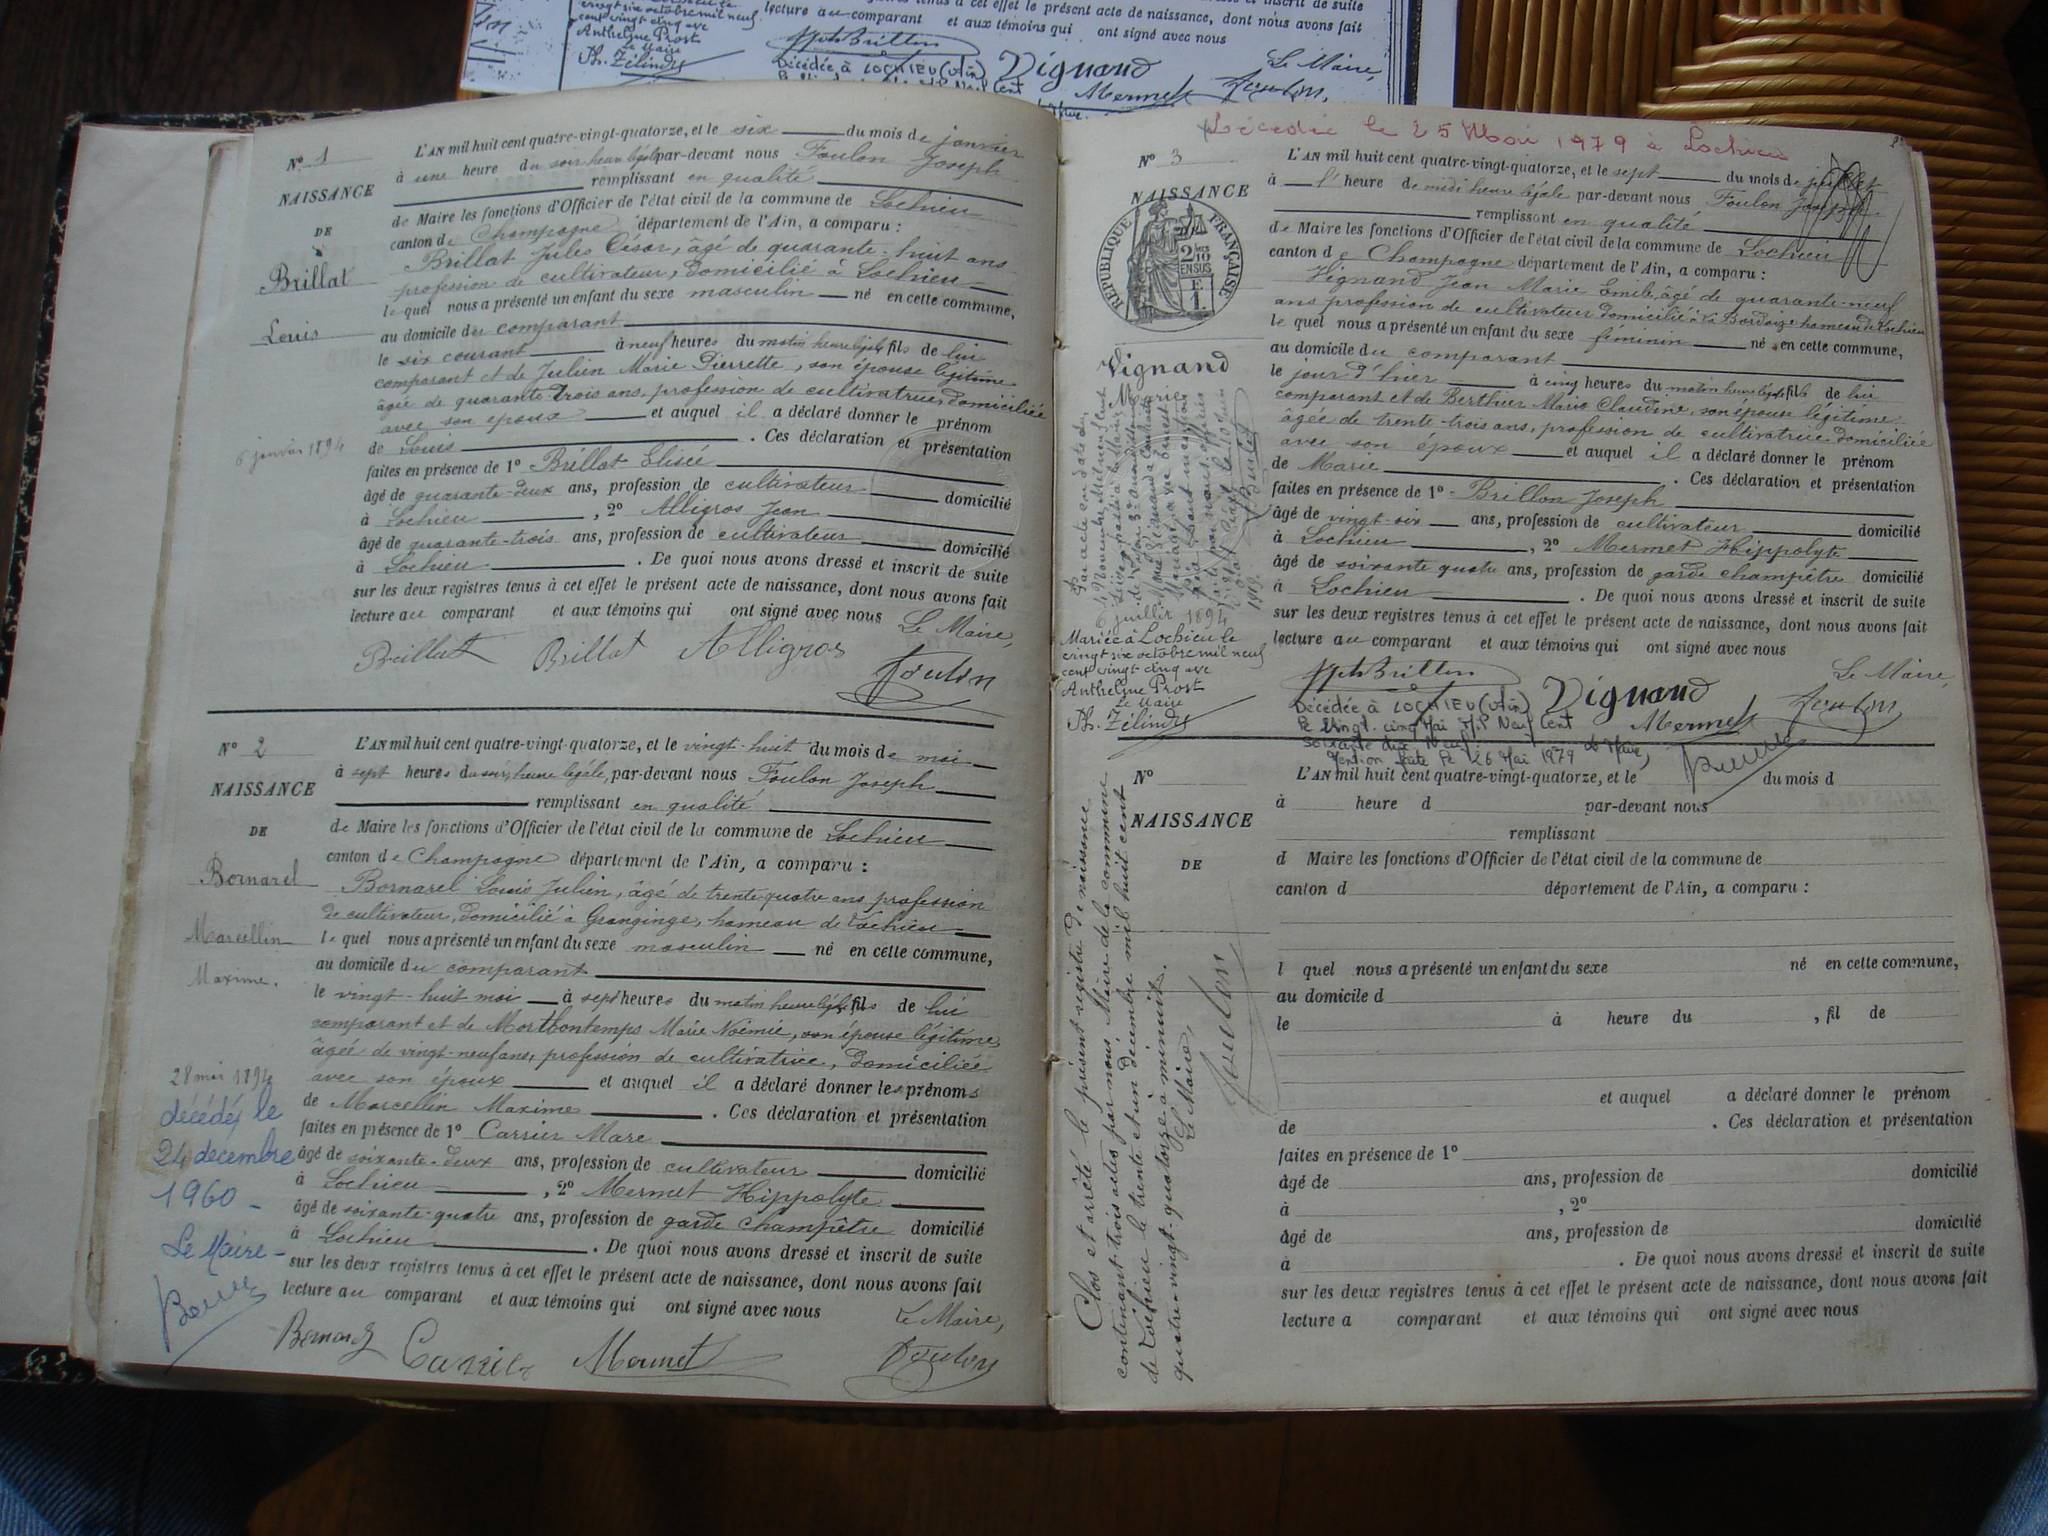 lecture au comparant et aux témoins qui ont signé avec nous
Anthelme Prost
Le Maire
Ph. Zélindre
Jph Brillon
Vignand
Le Maire,
Décédée à LOCHIEU (Ain)
Mermet
Foulon
N° 1
NAISSANCE
DE
Brillat
Louis
6 janvier 1894
L'AN mil huit cent quatre-vingt-quatorze, et le six du mois de janvier
à une heure du soir heure légale par-devant nous Foulon Joseph
remplissant en qualité
de Maire les fonctions d'Officier de l'état civil de la commune de Lochieu
canton de Champagne département de l'Ain, a comparu :
Brillat Jules César, âgé de quarante-huit ans
profession de cultivateur, domicilié à Lochieu
lequel nous a présenté un enfant du sexe masculin né en cette commune,
au domicile du comparant
le six courant à neuf heures du matin heure légale fils de lui
comparant et de Julien Marie Pierrette, son épouse légitime
âgée de quarante-trois ans, profession de cultivatrice, domiciliée
avec son époux et auquel il a déclaré donner le prénom
de Louis . Ces déclaration et présentation
faites en présence de 1° Brillat Elisée
âgé de quarante-deux ans, profession de cultivateur domicilié
à Lochieu , 2° Alligros Jean
âgé de quarante-trois ans, profession de cultivateur domicilié
à Lochieu . De quoi nous avons dressé et inscrit de suite
sur les deux registres tenus à cet effet le présent acte de naissance, dont nous avons fait
lecture au comparant et aux témoins qui ont signé avec nous Le Maire,
Brillat Brillat Alligros Foulon
N° 2
NAISSANCE
DE
Bornarel
Marcellin
Maxime.
28 mai 1894
décédé le
24 décembre
1960 -
Le Maire -
L'AN mil huit cent quatre-vingt-quatorze, et le vingt-huit du mois de mai
à sept heures du soir, heure légale, par-devant nous Foulon Joseph
remplissant en qualité
de Maire les fonctions d'Officier de l'état civil de la commune de Lochieu
canton de Champagne département de l'Ain, a comparu :
Bornarel Louis Julien, âgé de trente quatre ans profession
de cultivateur, domicilié à Granginge, hameau de Lochieu
lequel nous a présenté un enfant du sexe masculin né en cette commune,
au domicile du comparant
le vingt-huit mai à sept heures du matin heure légale fils de lui
comparant et de Montbontemps Marie Noémie, son épouse légitime
âgée de vingt-neuf ans, profession de cultivatrice, domiciliée
avec son époux et auquel il a déclaré donner les prénoms
de Marcellin Maxime . Ces déclaration et présentation
faites en présence de 1° Carrier Marc
âgé de soixante-deux ans, profession de cultivateur domicilié
à Lochieu , 2° Mermet Hippolyte
âgé de soixante-quatre ans, profession de garde champêtre domicilié
à Lochieu . De quoi nous avons dressé et inscrit de suite
sur les deux registres tenus à cet effet le présent acte de naissance, dont nous avons fait
lecture au comparant et aux témoins qui ont signé avec nous
Le Maire,
Bornarel Carrier Mermet Foulon
Décédée le 25 Mai 1979 à Lochieu
N° 3
NAISSANCE
RÉPUBLIQUE FRANÇAISE
2 10
EN SUS
Vignand
6 juillet 1894
Mariée à Lochieu le
vingt six octobre mil neuf
cent vingt cinq avec
Anthelme Prost
Le Maire
Ph. Zélindre
L'AN mil huit cent quatre-vingt-quatorze, et le sept du mois de juillet
à l'heure de midi heure légale par-devant nous Foulon Joseph
remplissant en qualité
de Maire les fonctions d'Officier de l'état civil de la commune de Lochieu
canton de Champagne département de l'Ain, a comparu :
Vignand Jean Marie Emile, âgé de quarante-neuf
ans profession de cultivateur domicilié à la Bardaize hameau de Lochieu
lequel nous a présenté un enfant du sexe féminin né en cette commune,
au domicile du comparant
le jour d'hier à cinq heures du matin heure légale fils de lui
comparant et de Berthier Marie Claudine, son épouse légitime
âgée de trente-trois ans, profession de cultivatrice domiciliée
avec son époux et auquel il a déclaré donner le prénom
de Marie . Ces déclaration et présentation
faites en présence de 1° Brillon Joseph
âgé de vingt-six ans, profession de cultivateur domicilié
à Lochieu , 2° Mermet Hippolyte
âgé de soixante quatre ans, profession de garde champêtre domicilié
à Lochieu . De quoi nous avons dressé et inscrit de suite
sur les deux registres tenus à cet effet le présent acte de naissance, dont nous avons fait
lecture au comparant et aux témoins qui ont signé avec nous
Le Maire,
Jph Brillon Vignand Mermet Foulon
Décédée à LOCHIEU (Ain)
le vingt cinq Mai Mil Neuf Cent
soixante dix Neuf.
Mention faite le 26 Mai 1979
N°
NAISSANCE
DE
L'AN mil huit cent quatre-vingt-quatorze, et le du mois d
à heure d par-devant nous
remplissant
d Maire les fonctions d'Officier de l'état civil de la commune de
canton d département de l'Ain, a comparu :
l quel nous a présenté un enfant du sexe né en cette commune,
au domicile d
le à heure du , fil de
et auquel a déclaré donner le prénom
de . Ces déclaration et présentation
faites en présence de 1°
âgé de ans, profession de domicilié
à , 2°
âgé de ans, profession de domicilié
à . De quoi nous avons dressé et inscrit de suite
sur les deux registres tenus à cet effet le présent acte de naissance, dont nous avons fait
lecture a comparant et aux témoins qui ont signé avec nous
Clos et arrêté le présent registre de naissance
contenant trois actes par nous, Maire de la commune
de Lochieu le trente et un décembre mil huit cent
quatre-vingt-quatorze à minuit.
Le Maire,
Foulon